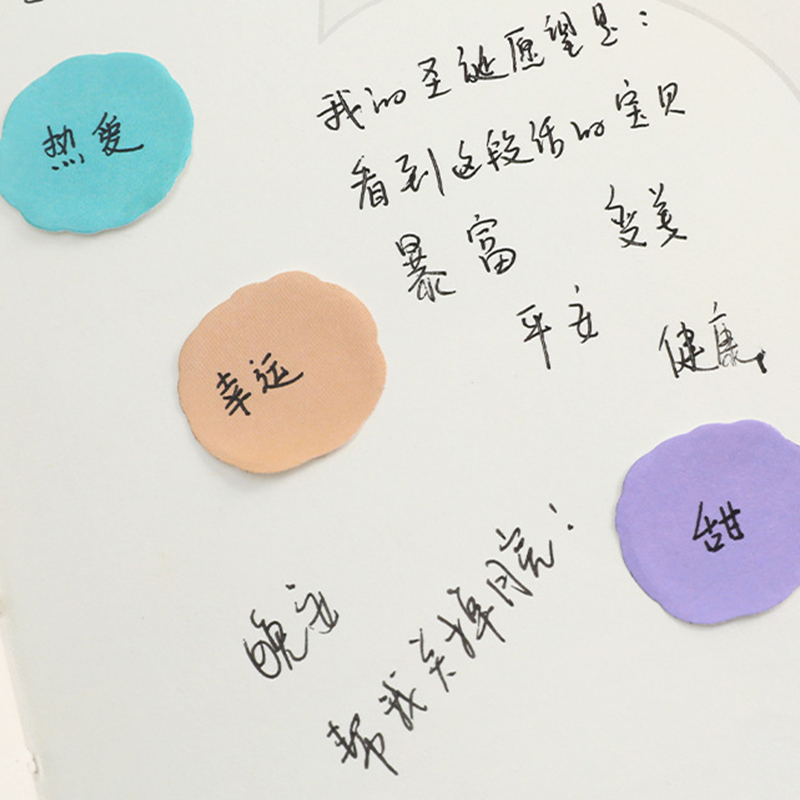 我的圣诞愿望是：
看到这段话的宝贝
暴富 变美
平安 健康
热爱
幸运
甜
晚安
帮我关掉月亮！